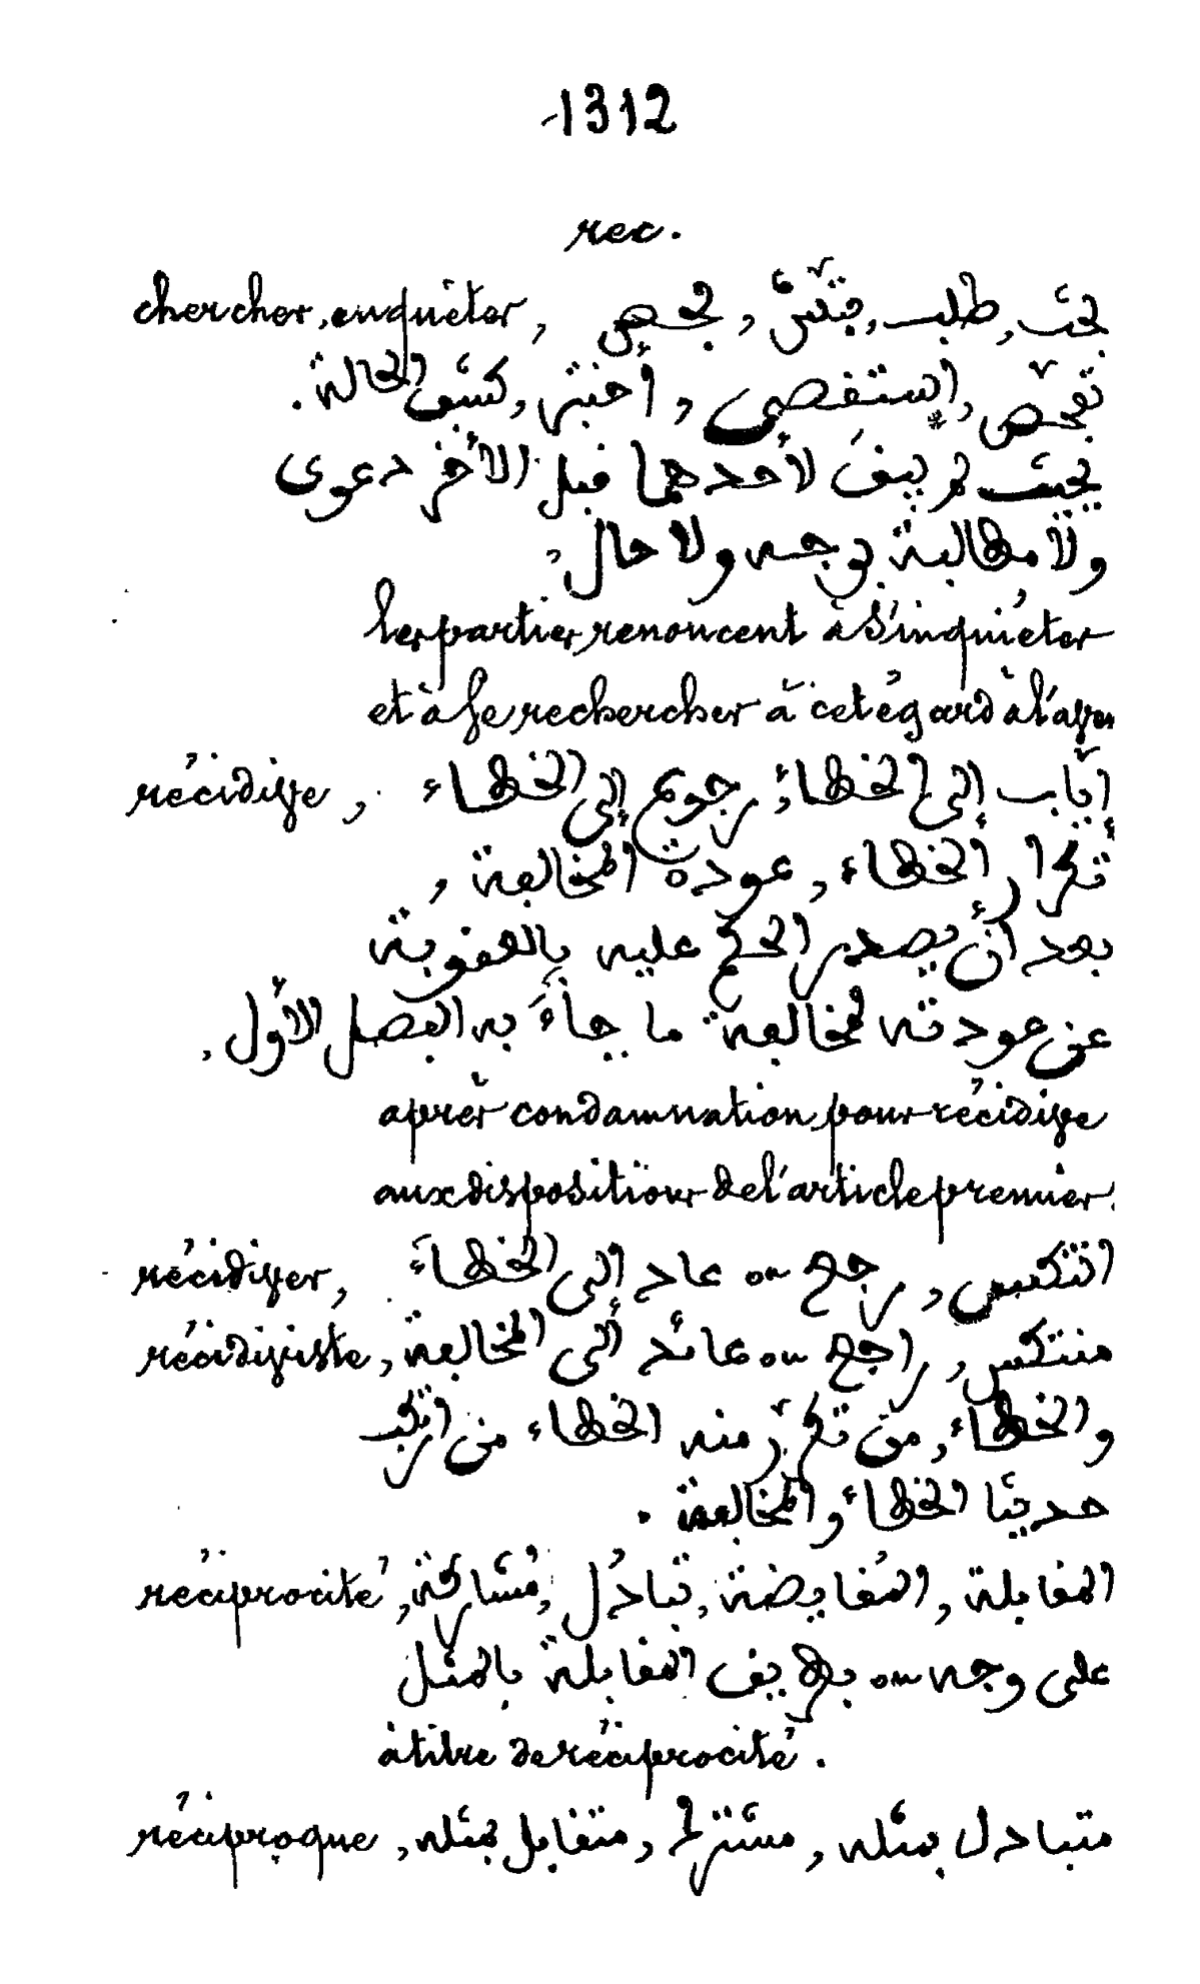 1312
rec.
chercher, enquêter, بحث, طلب, فتّش, فحص
تفحّص, إستقصى, أختبر, كشف الحالة.
بحيث لم يبقَ لأحدهما قبل الأخر دعوى
ولا مطالبة بوجه ولا حال,
les parties renoncent à s'inquiéter
et à se rechercher à cet égard à l'aven
récidive, إيّاب إلى الخطاء, رجوع إلى الخطاء
تكرار الخطاء, عودة المخالفة,
بعد أن يصدر الحكم عليه بالعقوبة
عن عودته لمخالفة ما جاءَ به الفصل الأوّل,
après condamnation pour récidive
aux dispositions de l'article premier.
récidiver, انتكس, رجع ou عاد إلى الخطاءَ
récidiviste, منتكس, راجع ou عائد ألى المخالفة
والخطاء, من تكرّر منه الخطاء من ارتكب
حديثا الخطاء والمخالفة.
réciprocité, المقابلة, المُقايضة, تبادُل, مُشاركة
على وجه ou بطريق المقابلة بالمثل
à titre de réciprocité.
réciproque, متبادل بمثله, مشترك, متقابل بمثله